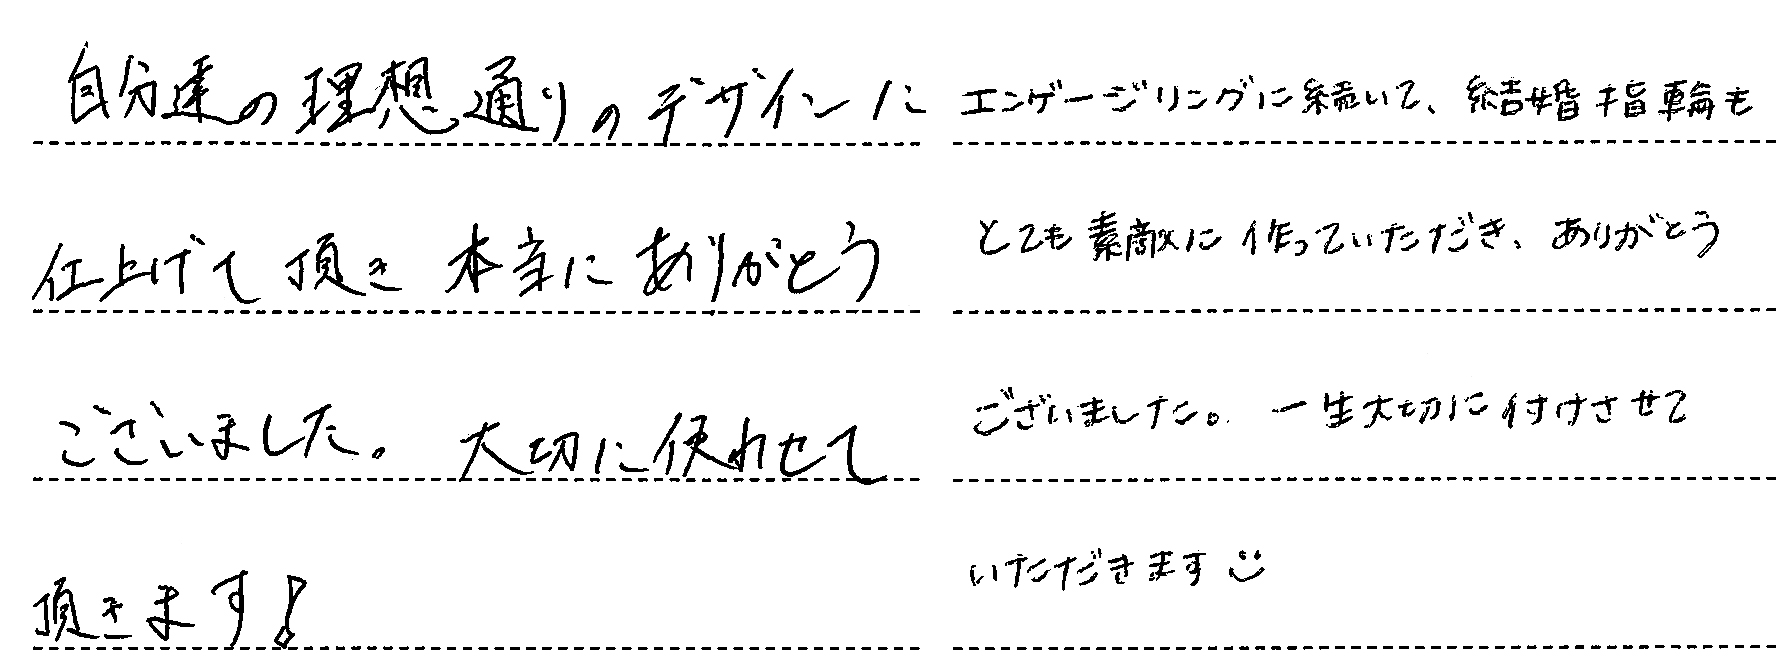 自分達の理想通りのデザインに
仕上げて頂き 本当にありがとう
ございました。大切に使わせて
頂きます!
エンゲージリングに続いて、結婚指輪も
とても素敵に作っていただき、ありがとう
ございました。一生大切に付けさせて
いただきます